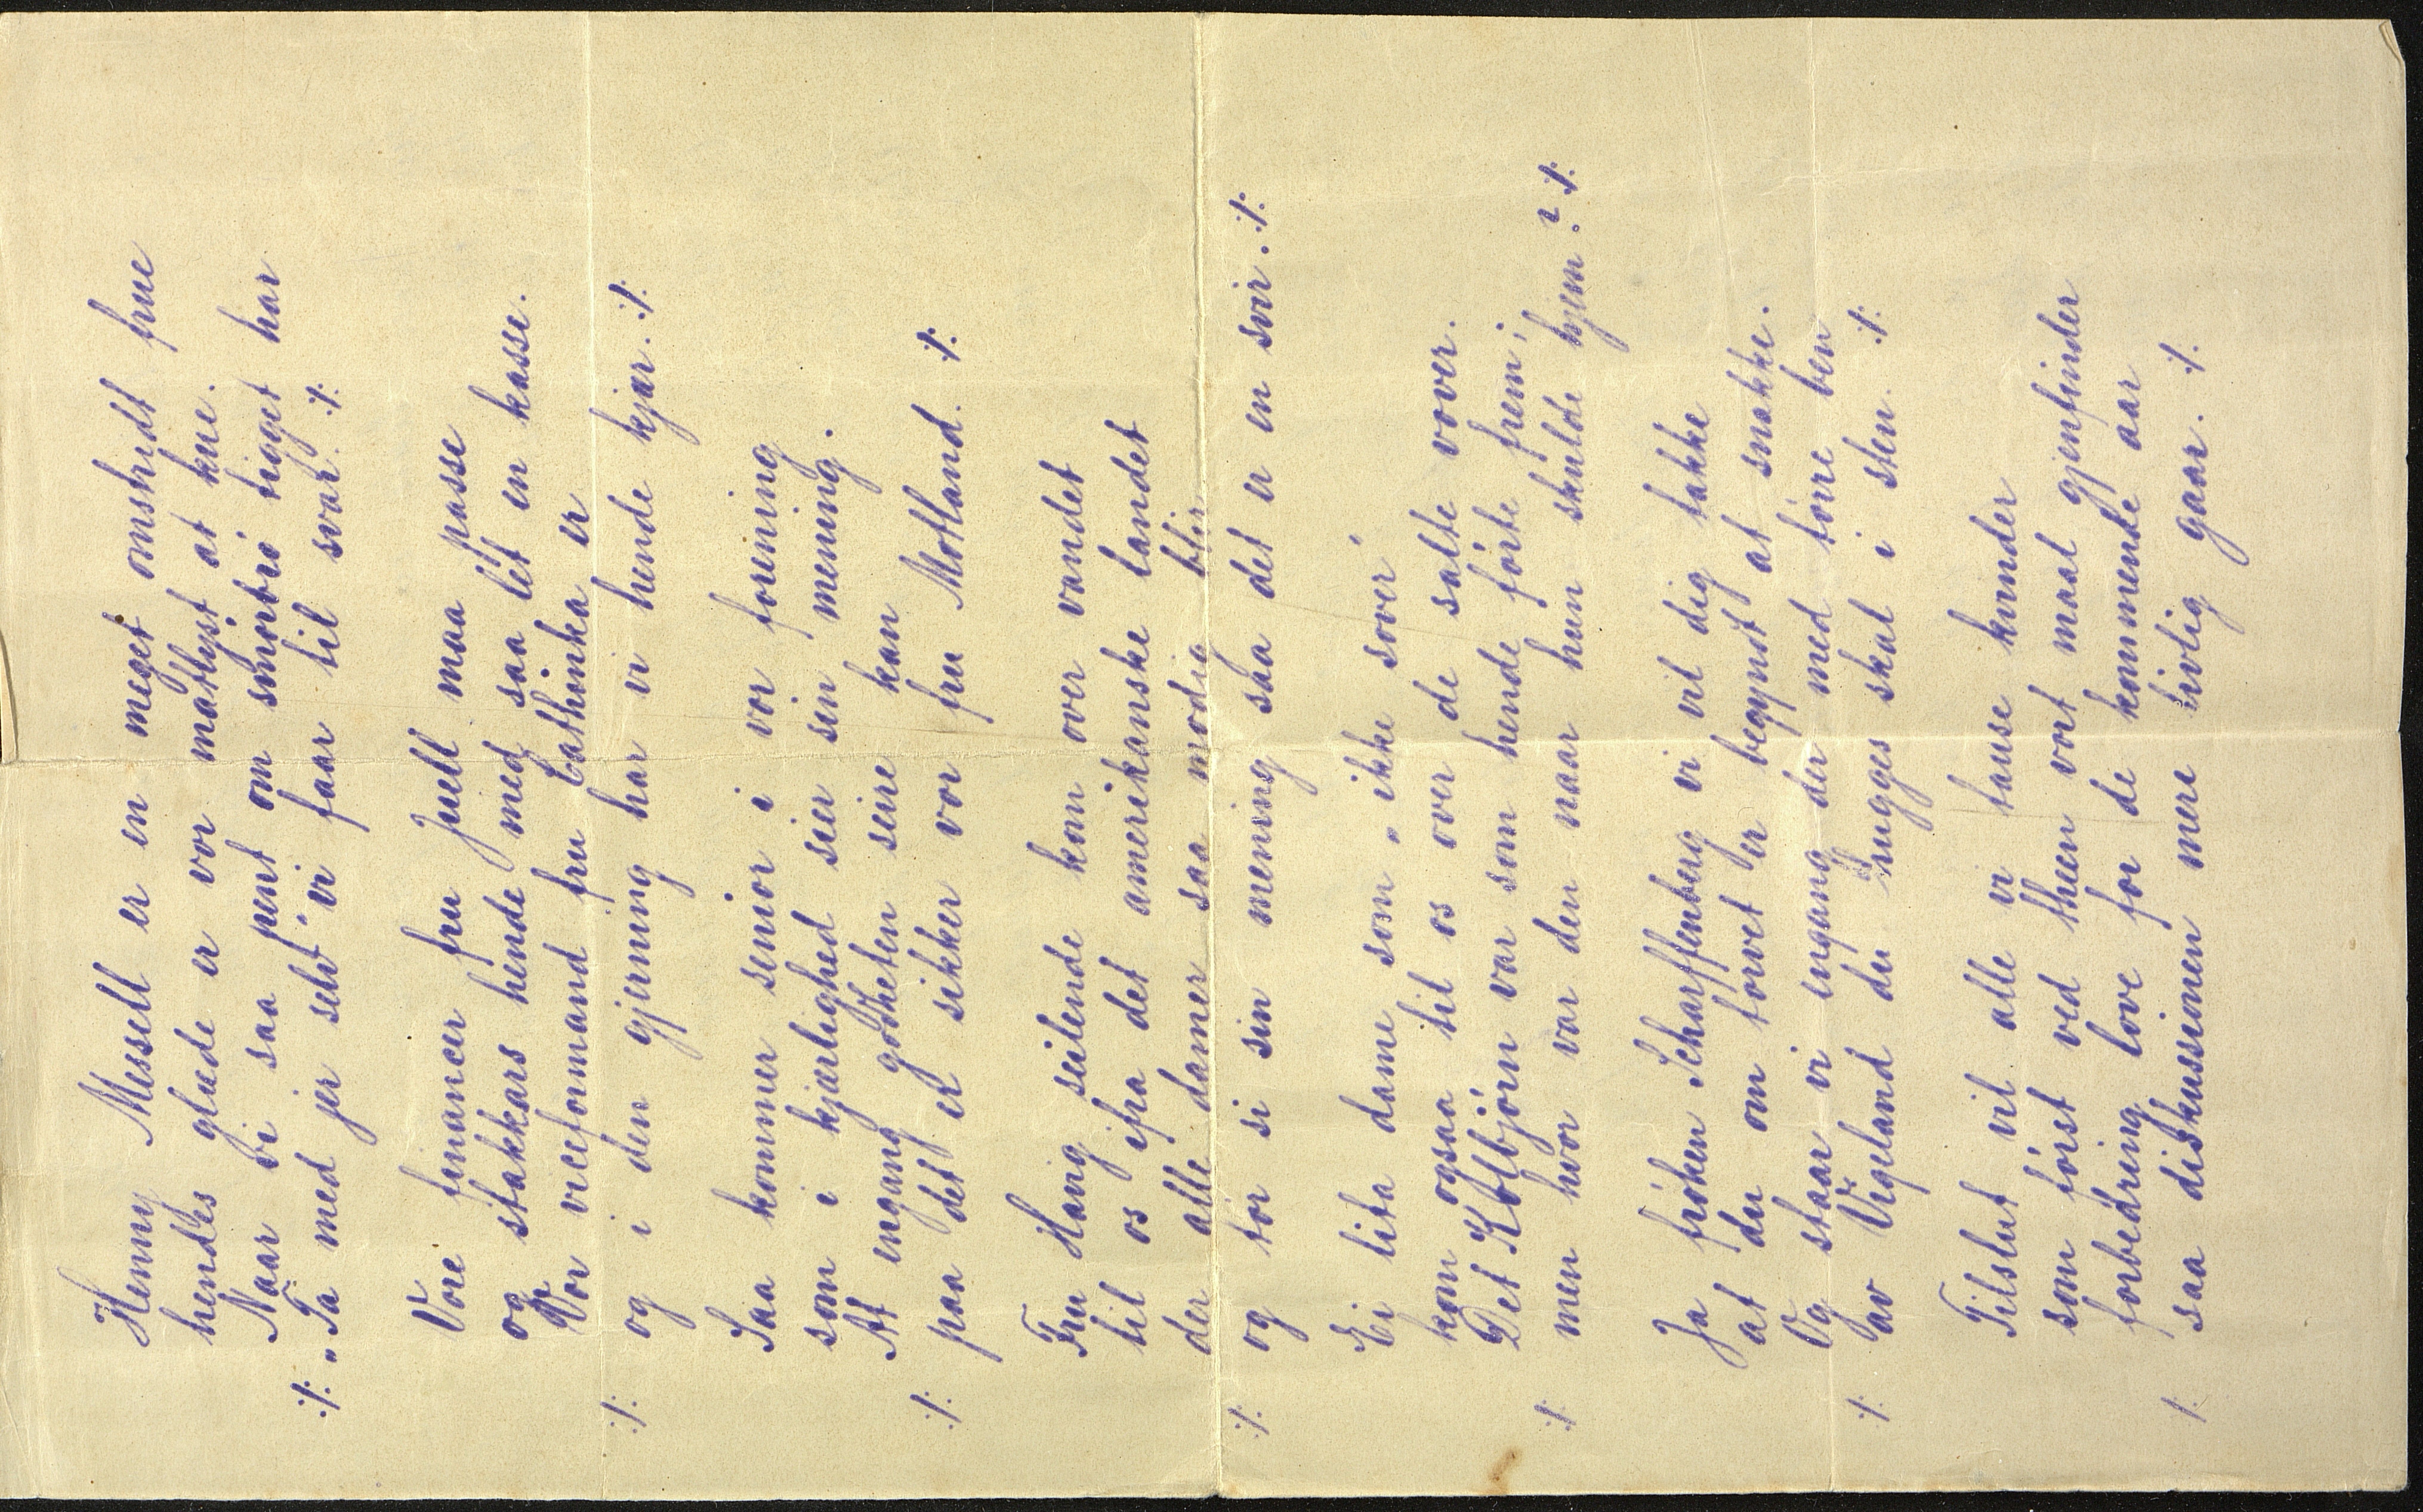 Henny Mesell er en meget omstridt frue
hendes glæde er vor matlyst at kue.
Naar vi saa pent om smørbrø tigget har
:/: „Ta med jer selv" vi faar til svar. :/:
Vore financer fru Juell maa passe
og stakkars hende med saa let en kasse.
Vor viceformand fru Cathinka er
:/: og i den gjerning har vi hende kjær. :/:
Saa kommer senior i vor forening
som i kjærlighed sier sin mening.
At engang godheten seire kan
:/: paa det er sikker vor fru Motland. :/:
Fru Hanig seilende kom over vandet
til os ifra det amerikanske landet
der alle damer saa modig blir
:/: og tør si sin mening saa det er en svir. :/:
Ei lita dame som „ikke sover"
kom ogsaa til os over de salte vover.
Det Kolbjørn var som hende førte frem;
:/: men hvor var den naar hun skulde hjem? :/:
Ja frøken Scharffenberg vi vil dig takke
at du om torvet er begyndt at snakke.
Og staar vi engang der med tørre ben
:/: av Vigeland du hugges skal i sten. :/:
Tilslut vil alle vi tause kvinder
som først ved theen vort maal gjenfinder
forbedring love for de kommende aar
:/: saa diskussionen mere livlig gaar. :/: